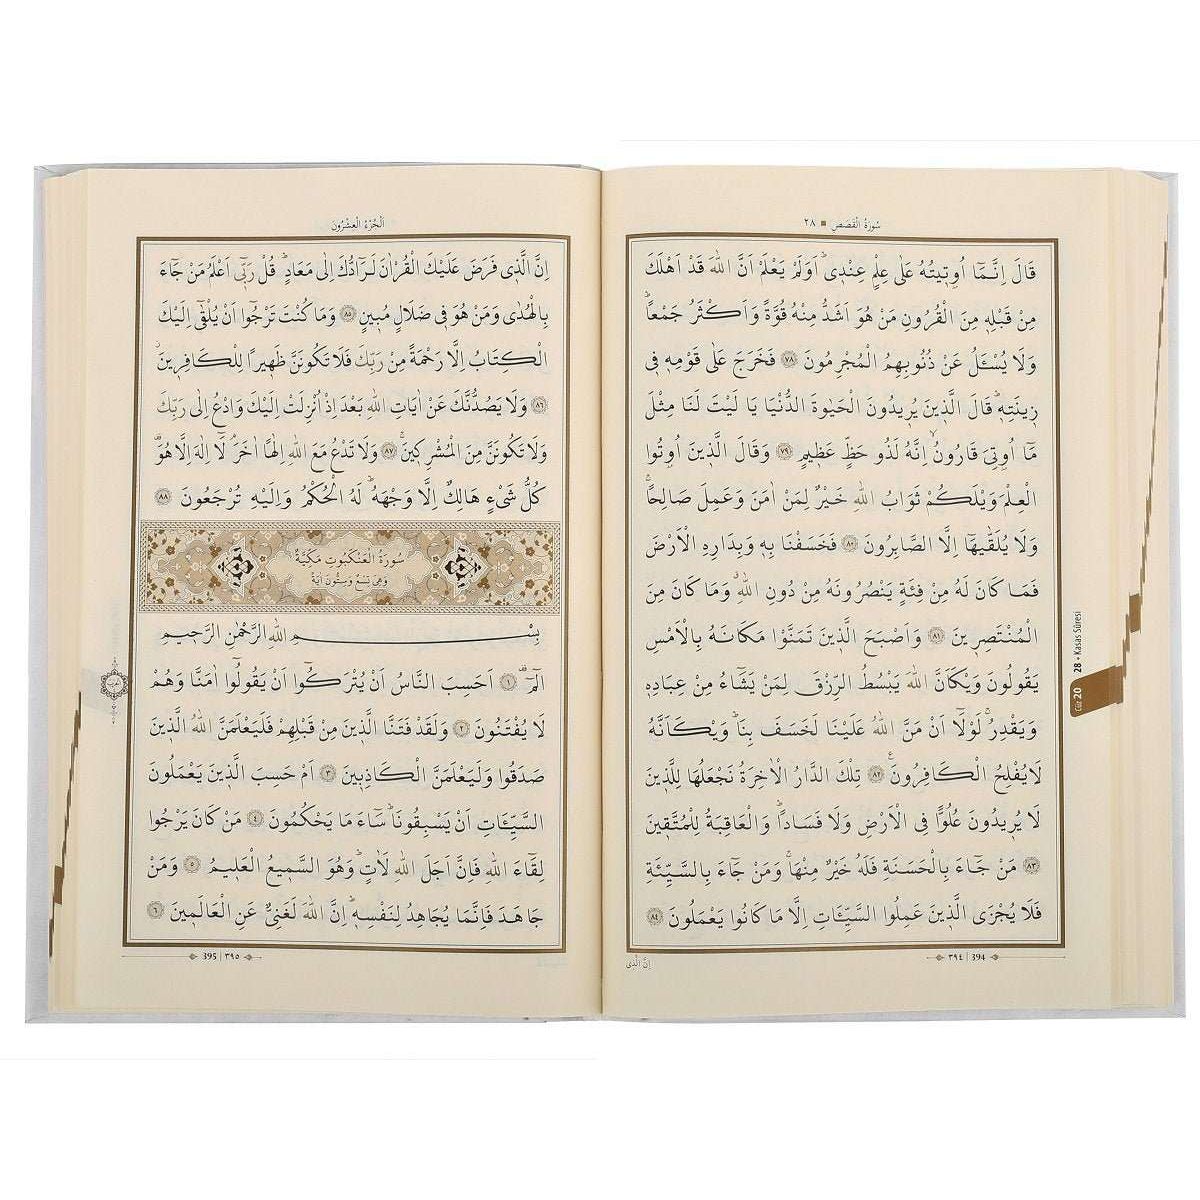 سُورَةُ الْقَصَصِ ٢٨
قَالَ اِنَّمَٓا اُو۫ت۪يتُهُ عَلٰى عِلْمٍ عِنْد۪يۜ اَوَلَمْ يَعْلَمْ اَنَّ اللّٰهَ قَدْ اَهْلَكَ
مِنْ قَبْلِه۪ مِنَ الْقُرُونِ مَنْ هُوَ اَشَدُّ مِنْهُ قُوَّةً وَاَكْثَرُ جَمْعًاۜ
وَلَا يُسْـَٔلُ عَنْ ذُنُوبِهِمُ الْمُجْرِمُونَ ٧٨ فَخَرَجَ عَلٰى قَوْمِه۪ ف۪ي
ز۪ينَتِه۪ۜ قَالَ الَّذ۪ينَ يُر۪يدُونَ الْحَيٰوةَ الدُّنْيَا يَا لَيْتَ لَنَا مِثْلَ
مَٓا اُو۫تِيَ قَارُونُۙ اِنَّهُ لَذُو حَظٍّ عَظ۪يمٍ ٧٩ وَقَالَ الَّذ۪ينَ اُو۫تُوا
الْعِلْمَ وَيْلَكُمْ ثَوَابُ اللّٰهِ خَيْرٌ لِمَنْ اٰمَنَ وَعَمِلَ صَالِحًاۚ
وَلَا يُلَقّٰيهَٓا اِلَّا الصَّابِرُونَ ٨٠ فَخَسَفْنَا بِه۪ وَبِدَارِهِ الْاَرْضَ
فَمَا كَانَ لَهُ مِنْ فِئَةٍ يَنْصُرُونَهُ مِنْ دُونِ اللّٰهِۗ وَمَا كَانَ مِنَ
الْمُنْتَصِر۪ينَ ٨١ وَاَصْبَحَ الَّذ۪ينَ تَمَنَّوْا مَكَانَهُ بِالْاَمْسِ
يَقُولُونَ وَيْكَاَنَّ اللّٰهَ يَبْسُطُ الرِّزْقَ لِمَنْ يَشَٓاءُ مِنْ عِبَادِه۪
وَيَقْدِرُۚ لَوْلَٓا اَنْ مَنَّ اللّٰهُ عَلَيْنَا لَخَسَفَ بِنَاۜ وَيْكَاَنَّهُ
لَا يُفْلِحُ الْكَافِرُونَ ٨٢ تِلْكَ الدَّارُ الْاٰخِرَةُ نَجْعَلُهَا لِلَّذ۪ينَ
لَا يُر۪يدُونَ عُلُوًّا فِي الْاَرْضِ وَلَا فَسَادًاۜ وَالْعَاقِبَةُ لِلْمُتَّق۪ينَ
٨٣ مَنْ جَٓاءَ بِالْحَسَنَةِ فَلَهُ خَيْرٌ مِنْهَاۚ وَمَنْ جَٓاءَ بِالسَّيِّئَةِ
فَلَا يُجْزَى الَّذ۪ينَ عَمِلُوا السَّيِّـَٔاتِ اِلَّا مَا كَانُوا يَعْمَلُونَ ٨٤
٣٩٤ | 394
اِنَّ الَّذ۪ي
Cüz 20 28 • Kasas Sûresi
اَلْجُزْءُ الْعِشْرُونَ
اِنَّ الَّذ۪ي فَرَضَ عَلَيْكَ الْقُرْاٰنَ لَرَٓادُّكَ اِلٰى مَعَادٍۜ قُلْ رَبّ۪ٓي اَعْلَمُ مَنْ جَٓاءَ
بِالْهُدٰى وَمَنْ هُوَ ف۪ي ضَلَالٍ مُب۪ينٍ ٨٥ وَمَا كُنْتَ تَرْجُٓوا اَنْ يُلْقٰٓى اِلَيْكَ
الْكِتَابُ اِلَّا رَحْمَةً مِنْ رَبِّكَ فَلَا تَكُونَنَّ ظَه۪يرًا لِلْكَافِر۪ينَۘ
٨٦ وَلَا يَصُدُّنَّكَ عَنْ اٰيَاتِ اللّٰهِ بَعْدَ اِذْ اُنْزِلَتْ اِلَيْكَ وَادْعُ اِلٰى رَبِّكَ
وَلَا تَكُونَنَّ مِنَ الْمُشْرِك۪ينَۚ ٨٧ وَلَا تَدْعُ مَعَ اللّٰهِ اِلٰهًا اٰخَرَۢ لَٓا اِلٰهَ اِلَّا هُوَ۠
كُلُّ شَيْءٍ هَالِكٌ اِلَّا وَجْهَهُۜ لَهُ الْحُكْمُ وَاِلَيْهِ تُرْجَعُونَ ٨٨
سُورَةُ الْعَنْكَبُوتِ مَكِّيَّةٌ
وَهِيَ تِسْعٌ وَسِتُّونَ اٰيَةً
بِسْمِ اللّٰهِ الرَّحْمٰنِ الرَّح۪يمِ
الٓمٓۜ ١ اَحَسِبَ النَّاسُ اَنْ يُتْرَكُٓوا اَنْ يَقُولُٓوا اٰمَنَّا وَهُمْ
لَا يُفْتَنُونَ ٢ وَلَقَدْ فَتَنَّا الَّذ۪ينَ مِنْ قَبْلِهِمْ فَلَيَعْلَمَنَّ اللّٰهُ الَّذ۪ينَ
صَدَقُوا وَلَيَعْلَمَنَّ الْكَاذِب۪ينَ ٣ اَمْ حَسِبَ الَّذ۪ينَ يَعْمَلُونَ
السَّيِّـَٔاتِ اَنْ يَسْبِقُونَاۜ سَٓاءَ مَا يَحْكُمُونَ ٤ مَنْ كَانَ يَرْجُوا
لِقَٓاءَ اللّٰهِ فَاِنَّ اَجَلَ اللّٰهِ لَاٰتٍۜ وَهُوَ السَّم۪يعُ الْعَل۪يمُ ٥ وَمَنْ
جَاهَدَ فَاِنَّمَا يُجَاهِدُ لِنَفْسِه۪ۜ اِنَّ اللّٰهَ لَغَنِيٌّ عَنِ الْعَالَم۪ينَ ٦
395 | ٣٩٥